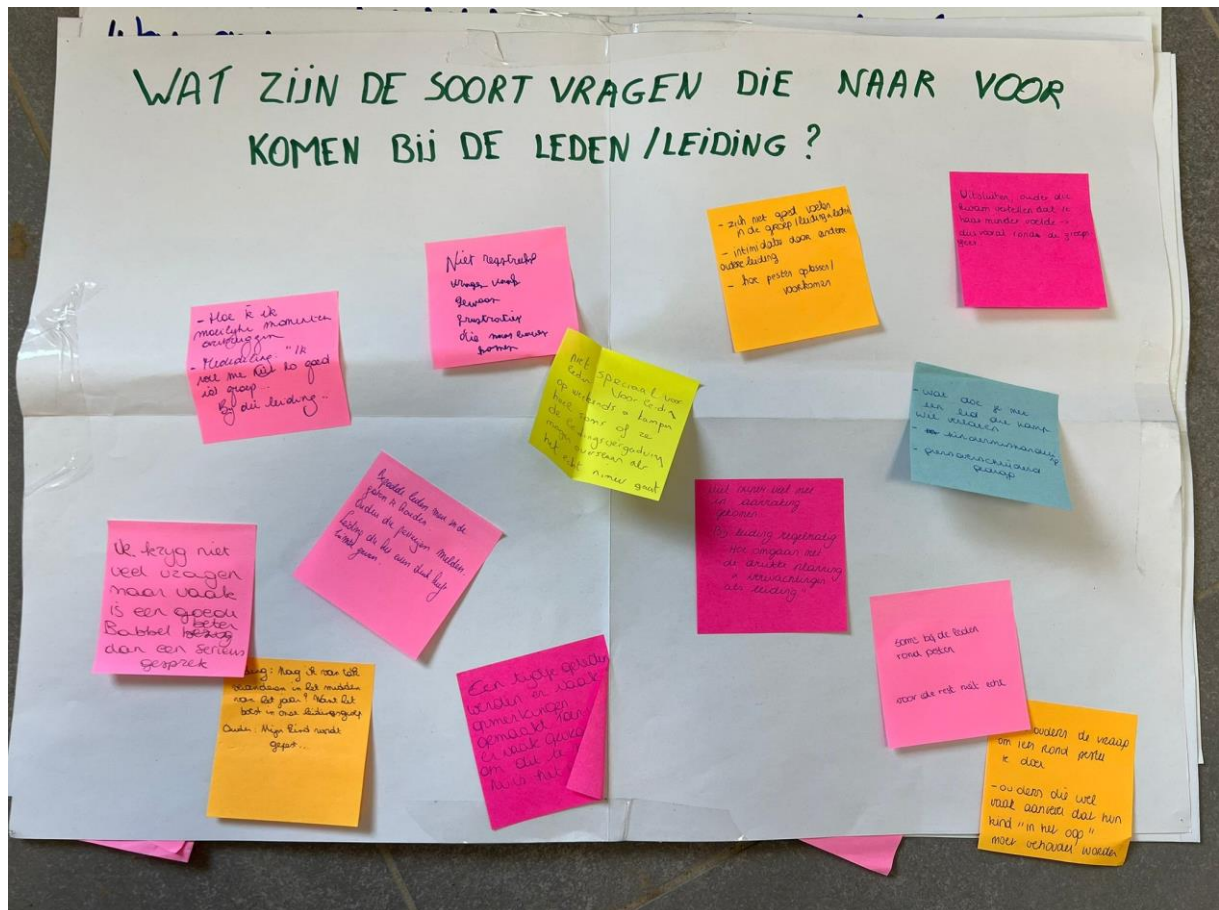 WAT ZIJN DE SOORT VRAGEN DIE NAAR VOOR
KOMEN BIJ DE LEDEN / LEIDING ?
- Hoe k ik
moeilijke momenten
- Mededeling: "Ik
voel me niet zo goed
groep...
Bij de leiding...
Niet regstreekse
vragen vaak
gewoon
frustraties
die naar boven
komen
- zich niet goed voelen
in de groep (leiding + leden)
- intimidatie door andere
oudere leiding
- hoe pesten oplossen/
voorkomen
Uitsluiten, ouder die
kwam vertellen dat ie
haar minder voelde →
dus vooral rond de groep
Niet speciaal voor
leden. Voor leiding
op weekends + kampen
heel soms of ze
de leidingsvergadering
mogen overslaan als
het echt niet meer gaat
- wat doe je met
een lid die kamp
wil verlaten
- kindermishandeling
- grensoverschrijdend
gedrag
Bepaalde leden meer in de
gaten te houden
Ouders die pesterijen melden
Leiding die het even druk heeft
Niet super veel mee
in aanraking
gekomen
Bij leiding regelmatig
"Hoe omgaan met
de drukte planning
+ verwachtingen
als leiding"
Ik krijg niet
veel vragen
maar vaak
is een goede
Babbel beter
dan een serieus
gesprek
: Mag ik van tak
veranderen in het midden
van het jaar? Want het
botst in onze leidingsgroep
Ouder: Mijn kind wordt
gepest...
Een tijdje geleden
werden er vaak
opmerkingen
gemaakt. Toen
er vaak
om dit te
soms bij de leden
rond pesten
voor de rest niet echt
ouders de vraag
om iets rond pesten
te doen
- ouders die wel
vaak aangeven dat hun
kind "in het oog"
moet gehouden worden